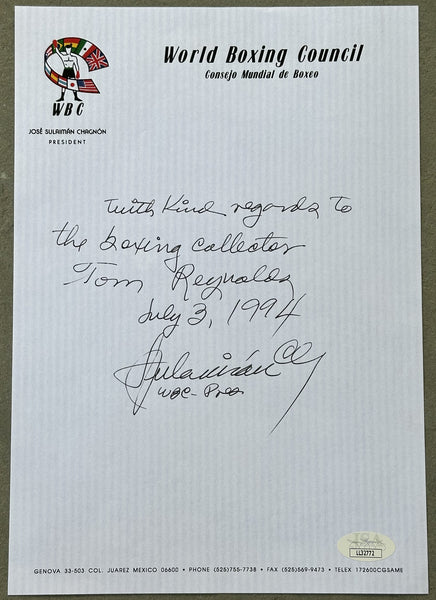 World Boxing Council
Consejo Mundial de Boxeo
WBC
JOSÉ SULAIMÁN CHAGNÓN
PRESIDENT
with Kind regards to
the boxing collector
Tom Reynolds
July 3, 1994
Sulaimán Ch
WBC-Pres
JSA
LL32772
GENOVA 33-503 COL. JUAREZ MEXICO 06600 • PHONE (525)755-7738 • FAX (525)569-9473 • TELEX 172600CGSAME